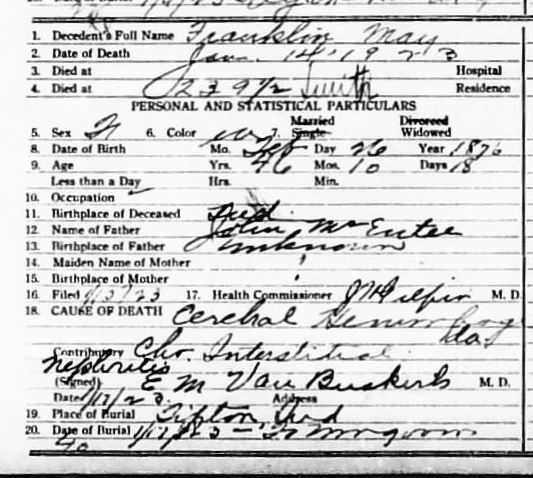 1. Decedent's Full Name Franklin May
2. Date of Death Jan. 14 1923
3. Died at Hospital
4. Died at 239 1/2 Smith Residence
PERSONAL AND STATISTICAL PARTICULARS
5. Sex F 6. Color W 7. Married Single Divorced Widowed
8. Date of Birth Mo. Feb Day 26 Year 1876
9. Age Yrs. 46 Mos. 10 Days 18
Less than a Day Hrs. Min.
10. Occupation
11. Birthplace of Deceased Ind
12. Name of Father John McEntee
13. Birthplace of Father Unknown
14. Maiden Name of Mother
15. Birthplace of Mother
16. Filed 17. Health Commissioner M. D.
18. CAUSE OF DEATH Cerebral Hemorrhage
Contributory Chr. Interstitial
Nephritis
(Signed) E M Van Buskirk M. D.
Date 1/17/23 Address
19. Place of Burial Tipton, Ind
20. Date of Burial 1/17/23
Co